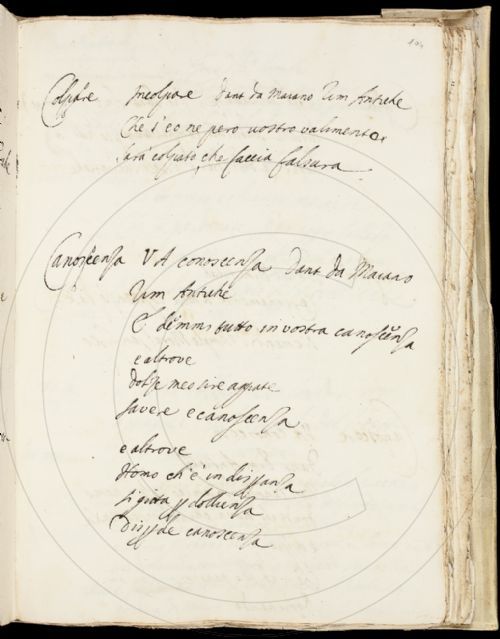 Colpare Incolpare Dant da Maiano Rim Antiche
Che s'eo ne pero vostro valimento
sarà colpato, che faccia falsura
Canoscenza V A conoscenza Dant da Maiano
Rim Antiche
E demmi tutto in vostra canoscenza
e altrove
dolze meo sire agrate
savere e canoscenza
e altrove
Homo ch'è in
si gitta doblenza
canoscenza